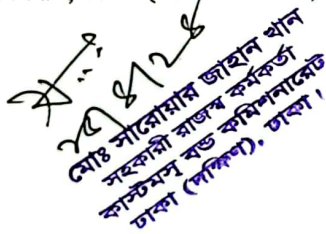 মোঃ সারোয়ার জাহান খান
সহকারী রাজস্ব কর্মকর্তা
কাস্টমস্ বন্ড কমিশনারেট
ঢাকা (দক্ষিণ), ঢাকা।